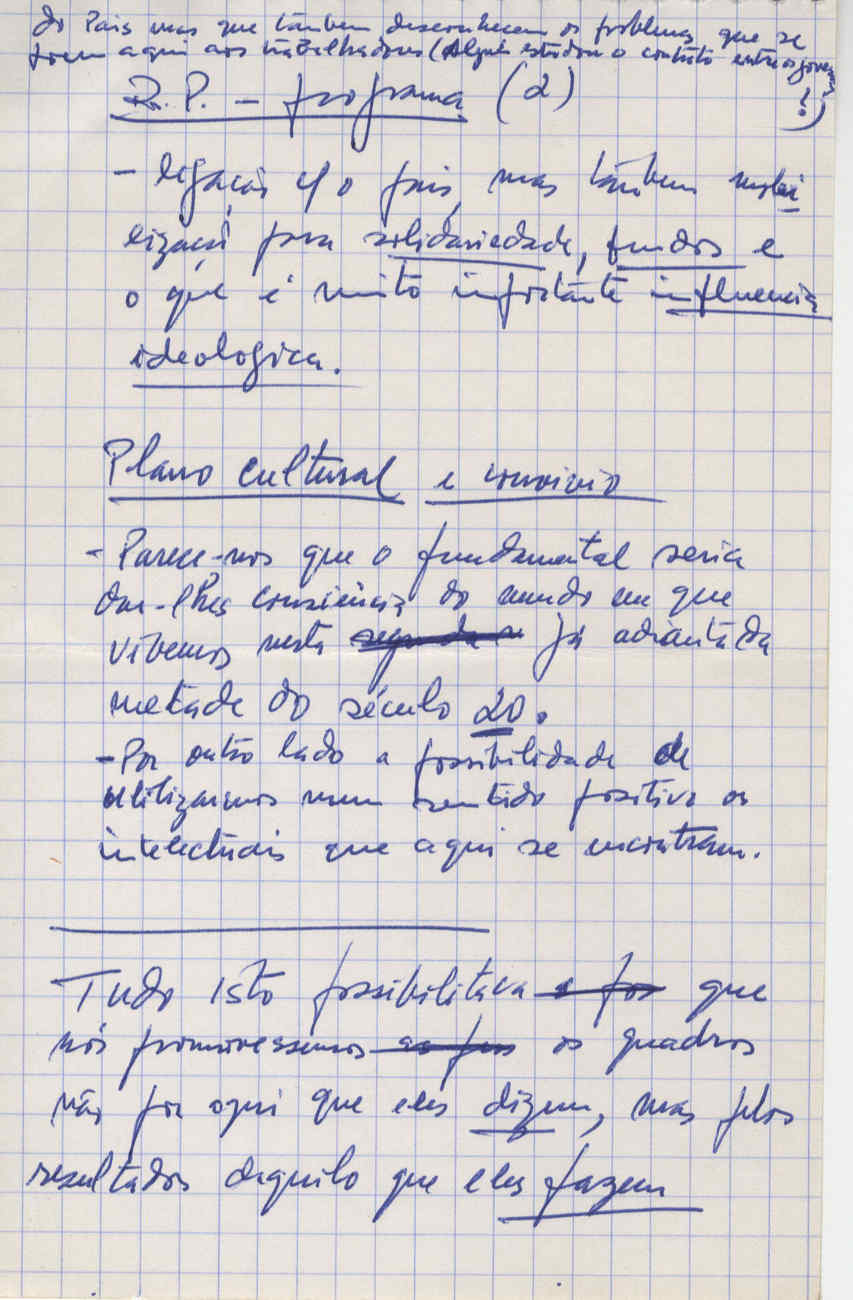 do Pais mas que também desconhecem os problemas que se
poem aqui aos trabalhadores (Alguem estudou o contrato entre os governos
?)
R.P. - programa (2)
- ligação c/ o pais, mas também mobi
lização para solidariedade, fundos e
o que é muito importante influencia
ideologica.
Plano cultural e convivio
- Parece-nos que o fundamental seria
dar-lhes consciência do mundo em que
vivemos nesta segunda já adiantada
metade do século 20.
- Por outro lado a possibilidade de
utilizarmos num sentido positivo os
intelectuais que aqui se encontram.
Tudo isto possibilitava que
nós promovessemos os quadros
não por aqui que eles dizem, mas pelos
resultados daquilo que eles fazem